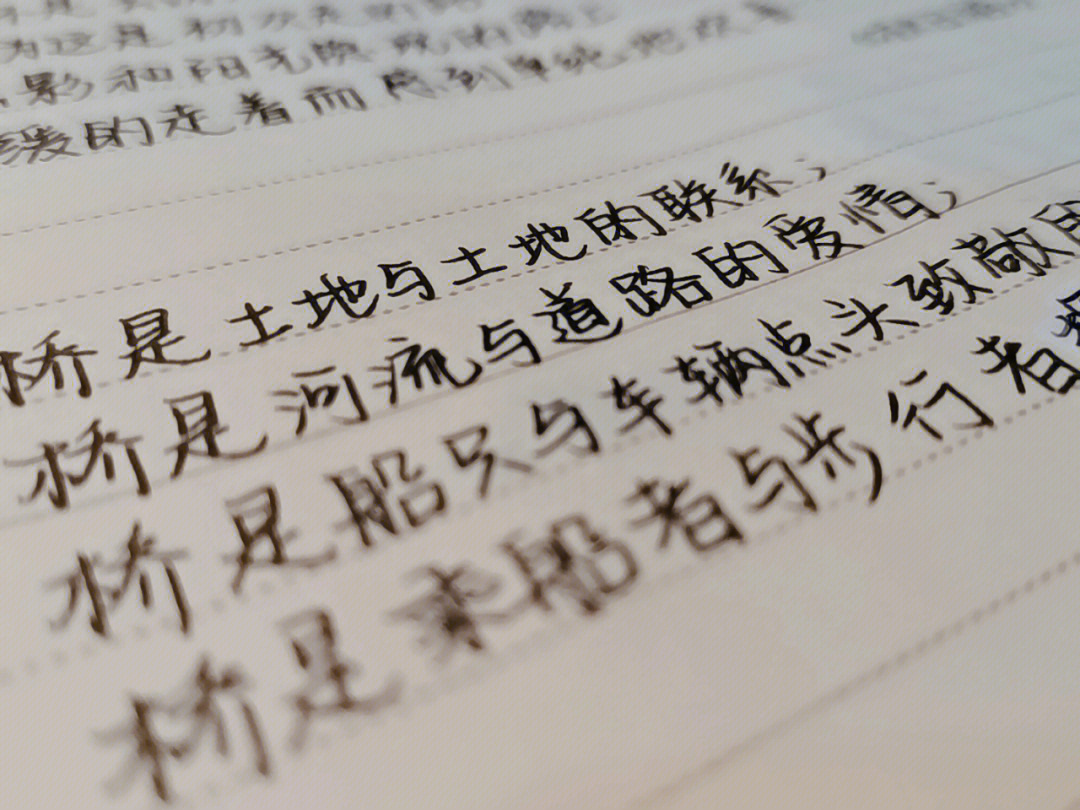 为这是初次
影和阳光
缓的走着而感到
桥是土地与土地的联系;
桥是河流与道路的爱情;
桥是船只与车辆点头致敬的
桥是乘船者与步行者